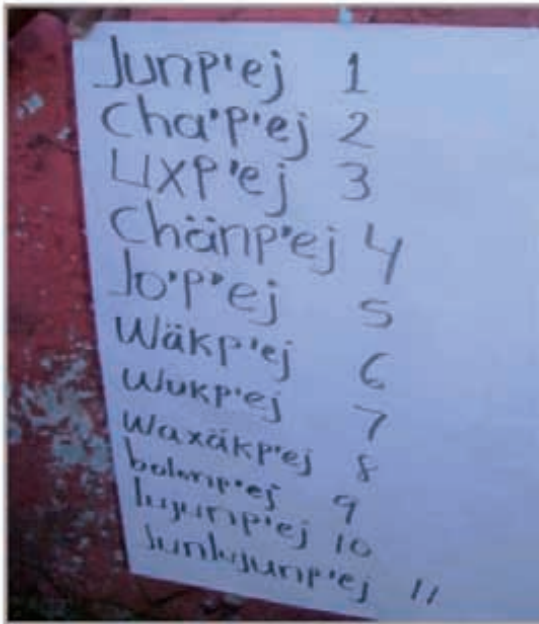 Junp'ej 1
Cha'p'ej 2
Uxp'ej 3
Chänp'ej 4
Jo'p'ej 5
Wäkp'ej 6
Wukp'ej 7
Waxäkp'ej 8
bolonp'ej 9
lujunp'ej 10
Junlujunp'ej 11